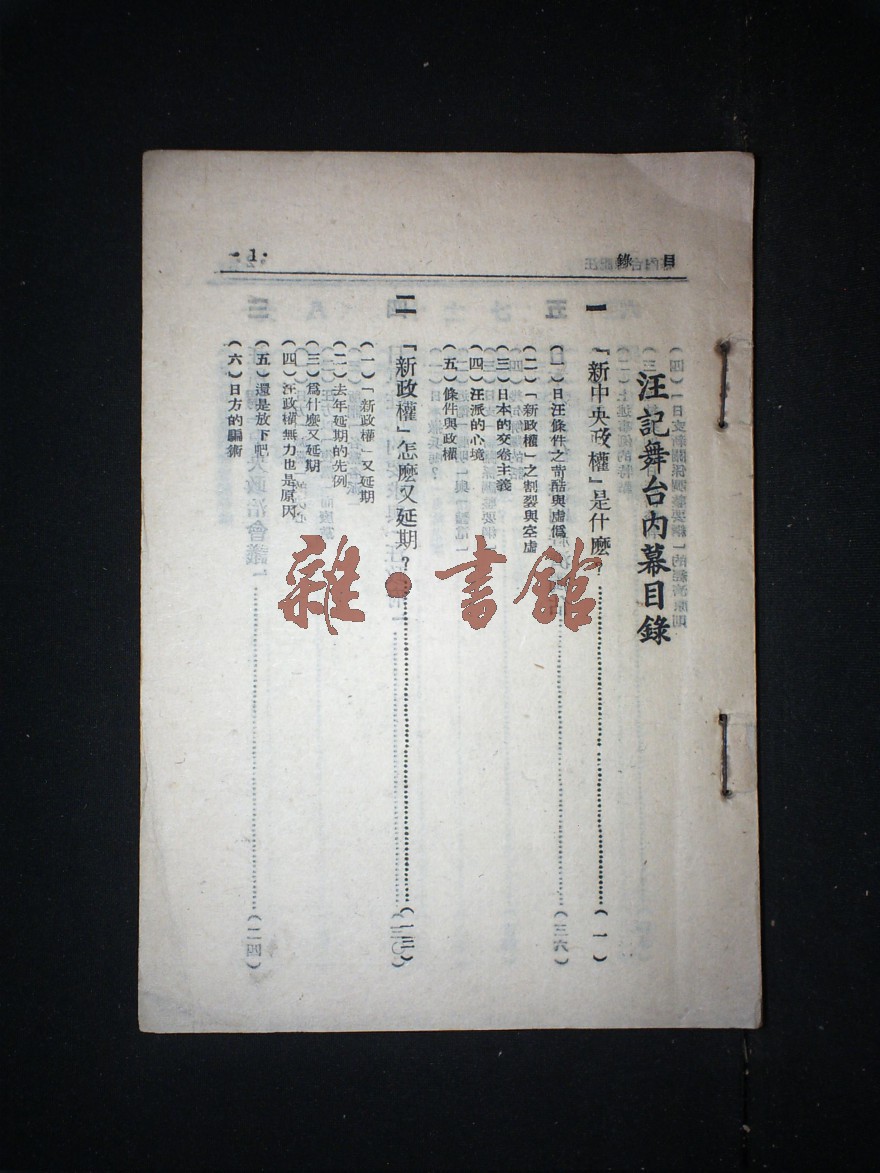 目錄
·1·
汪記舞台內幕目錄
一 「新中央政權」是什麼？……（一）
（一）日汪條件之苛酷與虛僞
（二）「新政權」之割裂與空虛
（三）日本的交卷主義
（四）汪派的心境
（五）條件與政權
二 「新政權」怎麼又延期？……（一三）
（一）「新政權」又延期
（二）去年延期的先例
（三）爲什麼又延期
（四）汪政權無力也是原因
（五）還是放下吧
（六）日方的騙術
雜·書館